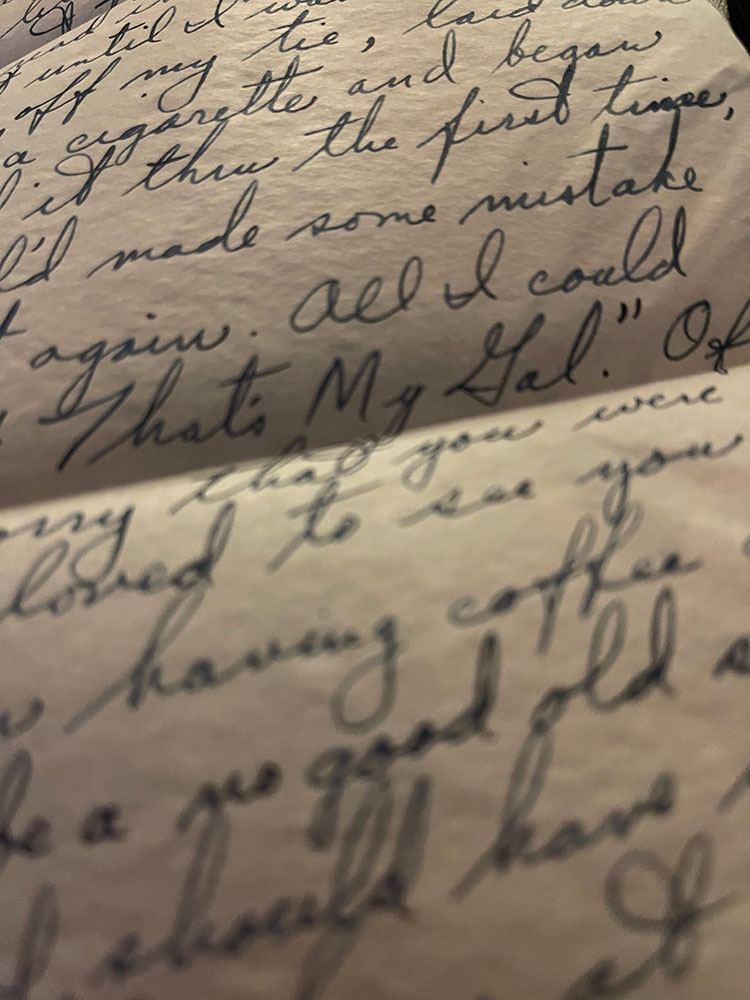 until I
off my tie, laid down
a cigarette and began
it thru the first time,
I'd made some mistake
again. All I could
"That's My Gal." Of
that you were
loved to see you
having coffee
be a no good old
should have
at